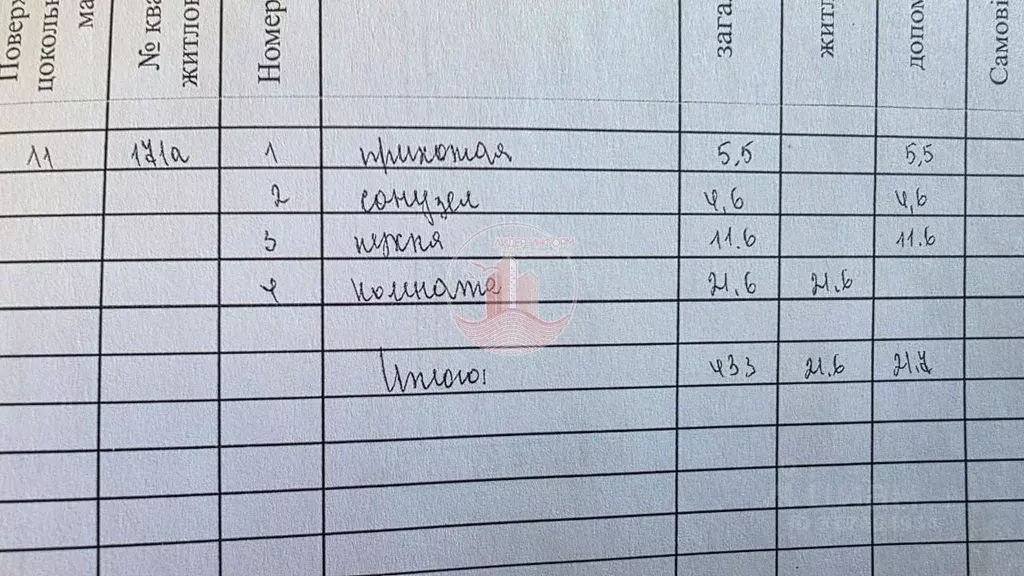 Поверх
цоколь
ма
№ ква
житлов
Номер
зага
житл
допом
Самові
11 171а 1 прихожая 5,5 5,5
2 сонузел 4,6 4,6
3 кухня 11.6 11.6
ЛИДЕР ИНФОРМ
4 комната 21.6 21.6
Итого: 433 21.6 21.7